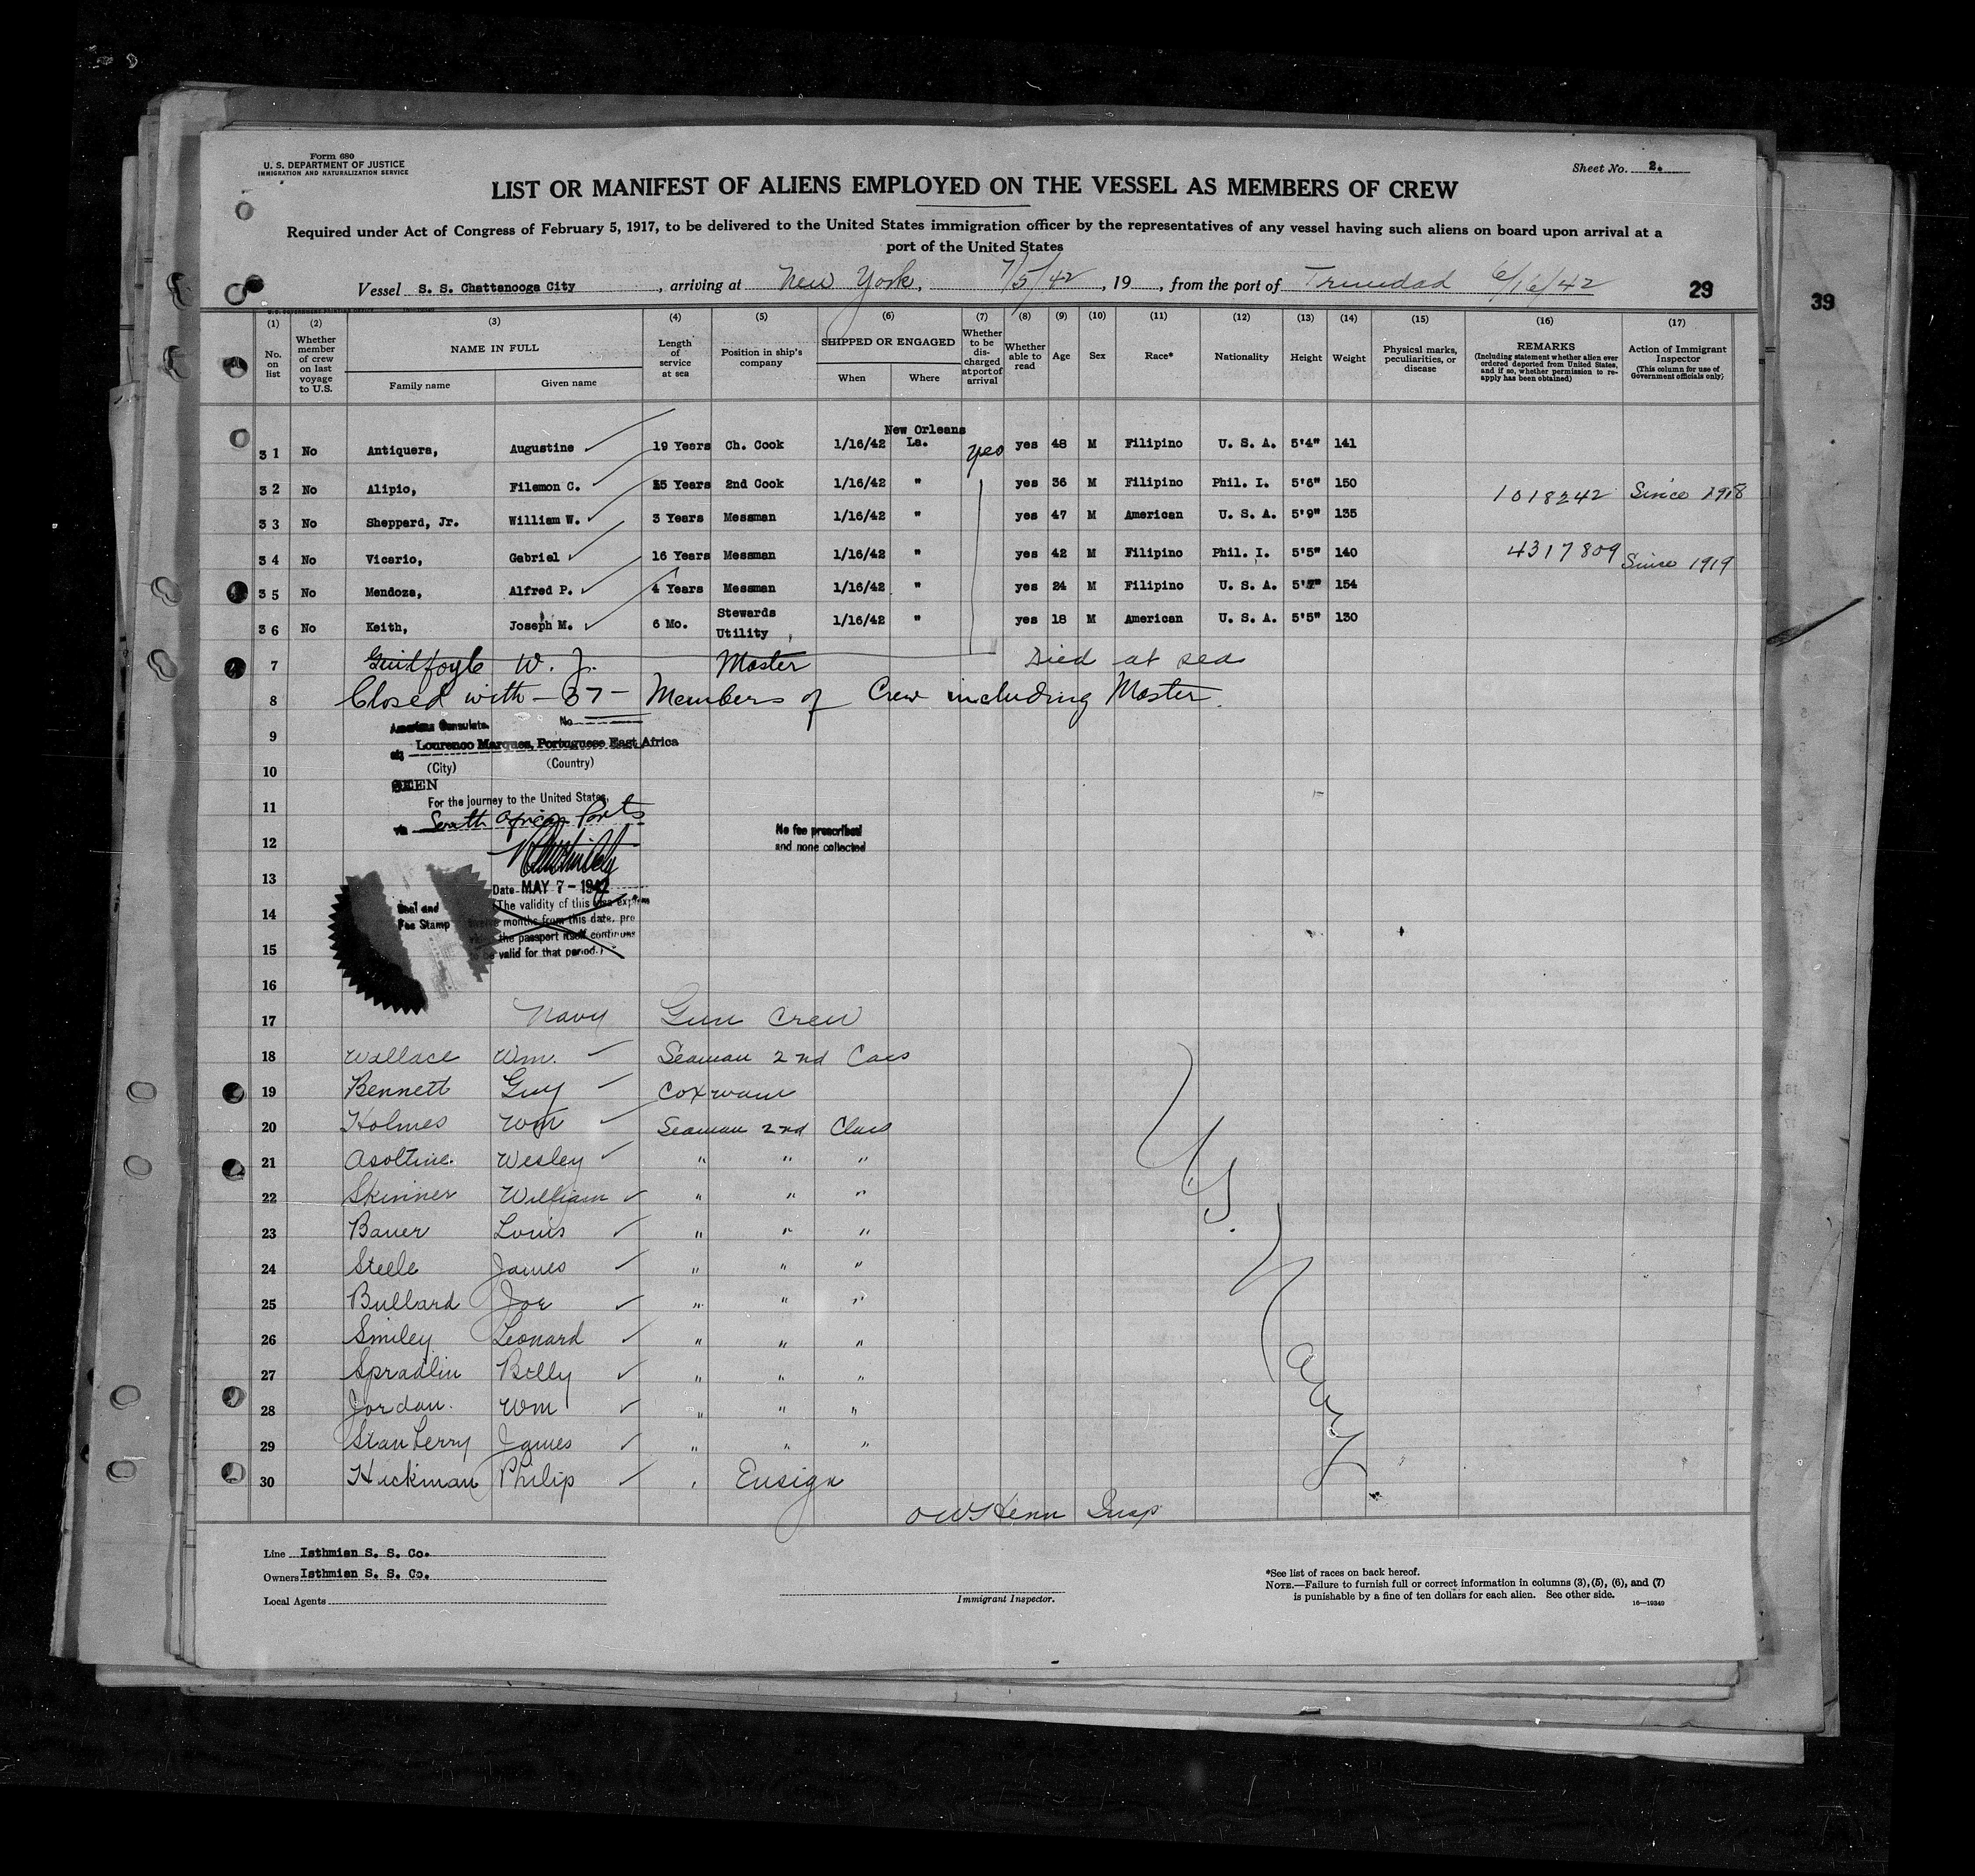 Form 680
U. S. DEPARTMENT OF JUSTICE
IMMIGRATION AND NATURALIZATION SERVICE
Sheet No. 2.
LIST OR MANIFEST OF ALIENS EMPLOYED ON THE VESSEL AS MEMBERS OF CREW
Required under Act of Congress of February 5, 1917, to be delivered to the United States immigration officer by the representatives of any vessel having such aliens on board upon arrival at a
port of the United States
Vessel S. S. Chattanooga City, arriving at New York, 7/5/42, 19, from the port of Trinidad 6/16/42
29
39
(1) (2) (3) (4) (5) (6) (7) (8) (9) (10) (11) (12) (13) (14) (15) (16) (17)
No. on list
Whether member of crew on last voyage to U.S.
NAME IN FULL
Family name
Given name
Length of service at sea
Position in ship's company
SHIPPED OR ENGAGED
When
Where
Whether to be discharged at port of arrival
Whether able to read
Age
Sex
Race*
Nationality
Height
Weight
Physical marks, peculiarities, or disease
REMARKS
(Including statement whether alien ever ordered deported from United States, and if so, whether permission to reapply has been obtained)
Action of Immigrant Inspector
(This column for use of Government officials only)
31 No Antiquera, Augustine 19 Years Ch. Cook 1/16/42 New Orleans La. yes yes 48 M Filipino U. S. A. 5'4" 141
32 No Alipio, Filemon C. 15 Years 2nd Cook 1/16/42 " yes 36 M Filipino Phil. I. 5'6" 150 1018242 Since 1918
33 No Sheppard, Jr. William W. 3 Years Messman 1/16/42 " yes 47 M American U. S. A. 5'9" 135
34 No Vicario, Gabriel 16 Years Messman 1/16/42 " yes 42 M Filipino Phil. I. 5'5" 140 4317809 Since 1919
35 No Mendoza, Alfred P. 4 Years Messman 1/16/42 " yes 24 M Filipino U. S. A. 5'7" 154
36 No Keith, Joseph M. 6 Mo. Stewards Utility 1/16/42 " yes 18 M American U. S. A. 5'5" 130
7 Guilfoyle W. J. Master Died at sea
8 Closed with - 37 - Members of Crew including Master.
9 American Consulate No.
at Lourenco Marques, Portuguese East Africa
10 (City) (Country)
SEEN
11 For the journey to the United States
via South African Ports
12 No fee prescribed
and none collected
13 Date MAY 7 - 1942
14 Seal and Fee Stamp
(The validity of this visa expires
twelve months from this date, pro
the passport itself continues
15 be valid for that period.)
16
17 Navy Gun Crew
18 Wallace Wm. Seaman 2nd Cass
19 Bennett Guy Coxwain
20 Holmes Wm Seaman 2nd Class
21 Asoltine Wesley " " "
22 Skinner William " " "
23 Bauer Louis " " "
24 Steele James " " "
25 Bullard Joe " " "
26 Smiley Leonard " " "
27 Spradlin Billy " " "
28 Jordan. Wm " " "
29 Stanberry James " " "
30 Hickman Philip Ensign
U.S. Navy
Insp
Line Isthmian S. S. Co.
Owners Isthmian S. S. Co.
Local Agents
Immigrant Inspector.
*See list of races on back hereof.
NOTE.—Failure to furnish full or correct information in columns (3), (5), (6), and (7)
is punishable by a fine of ten dollars for each alien. See other side.
16—19349